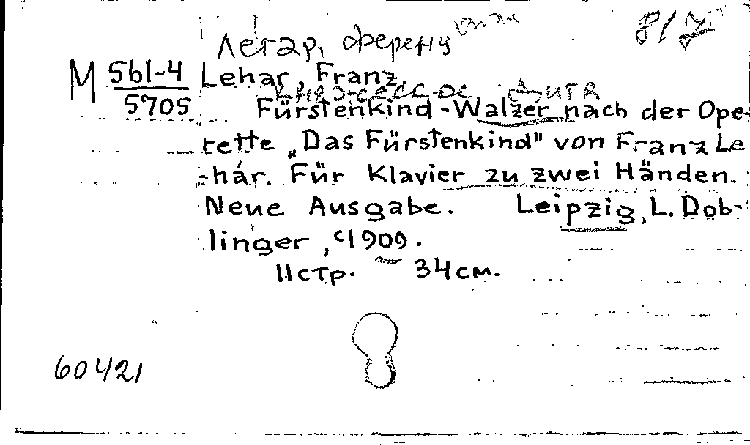 Легар, Ференц
М 561-4 Lehar, Franz.
5705 Fürstenkind-Walzer nach der Ope-
rette „Das Fürstenkind" von Franz Le-
hár. Für Klavier zu zwei Händen.
Neue Ausgabe. Leipzig, L. Dob-
linger, c1909.
11стр. 34см.
60421